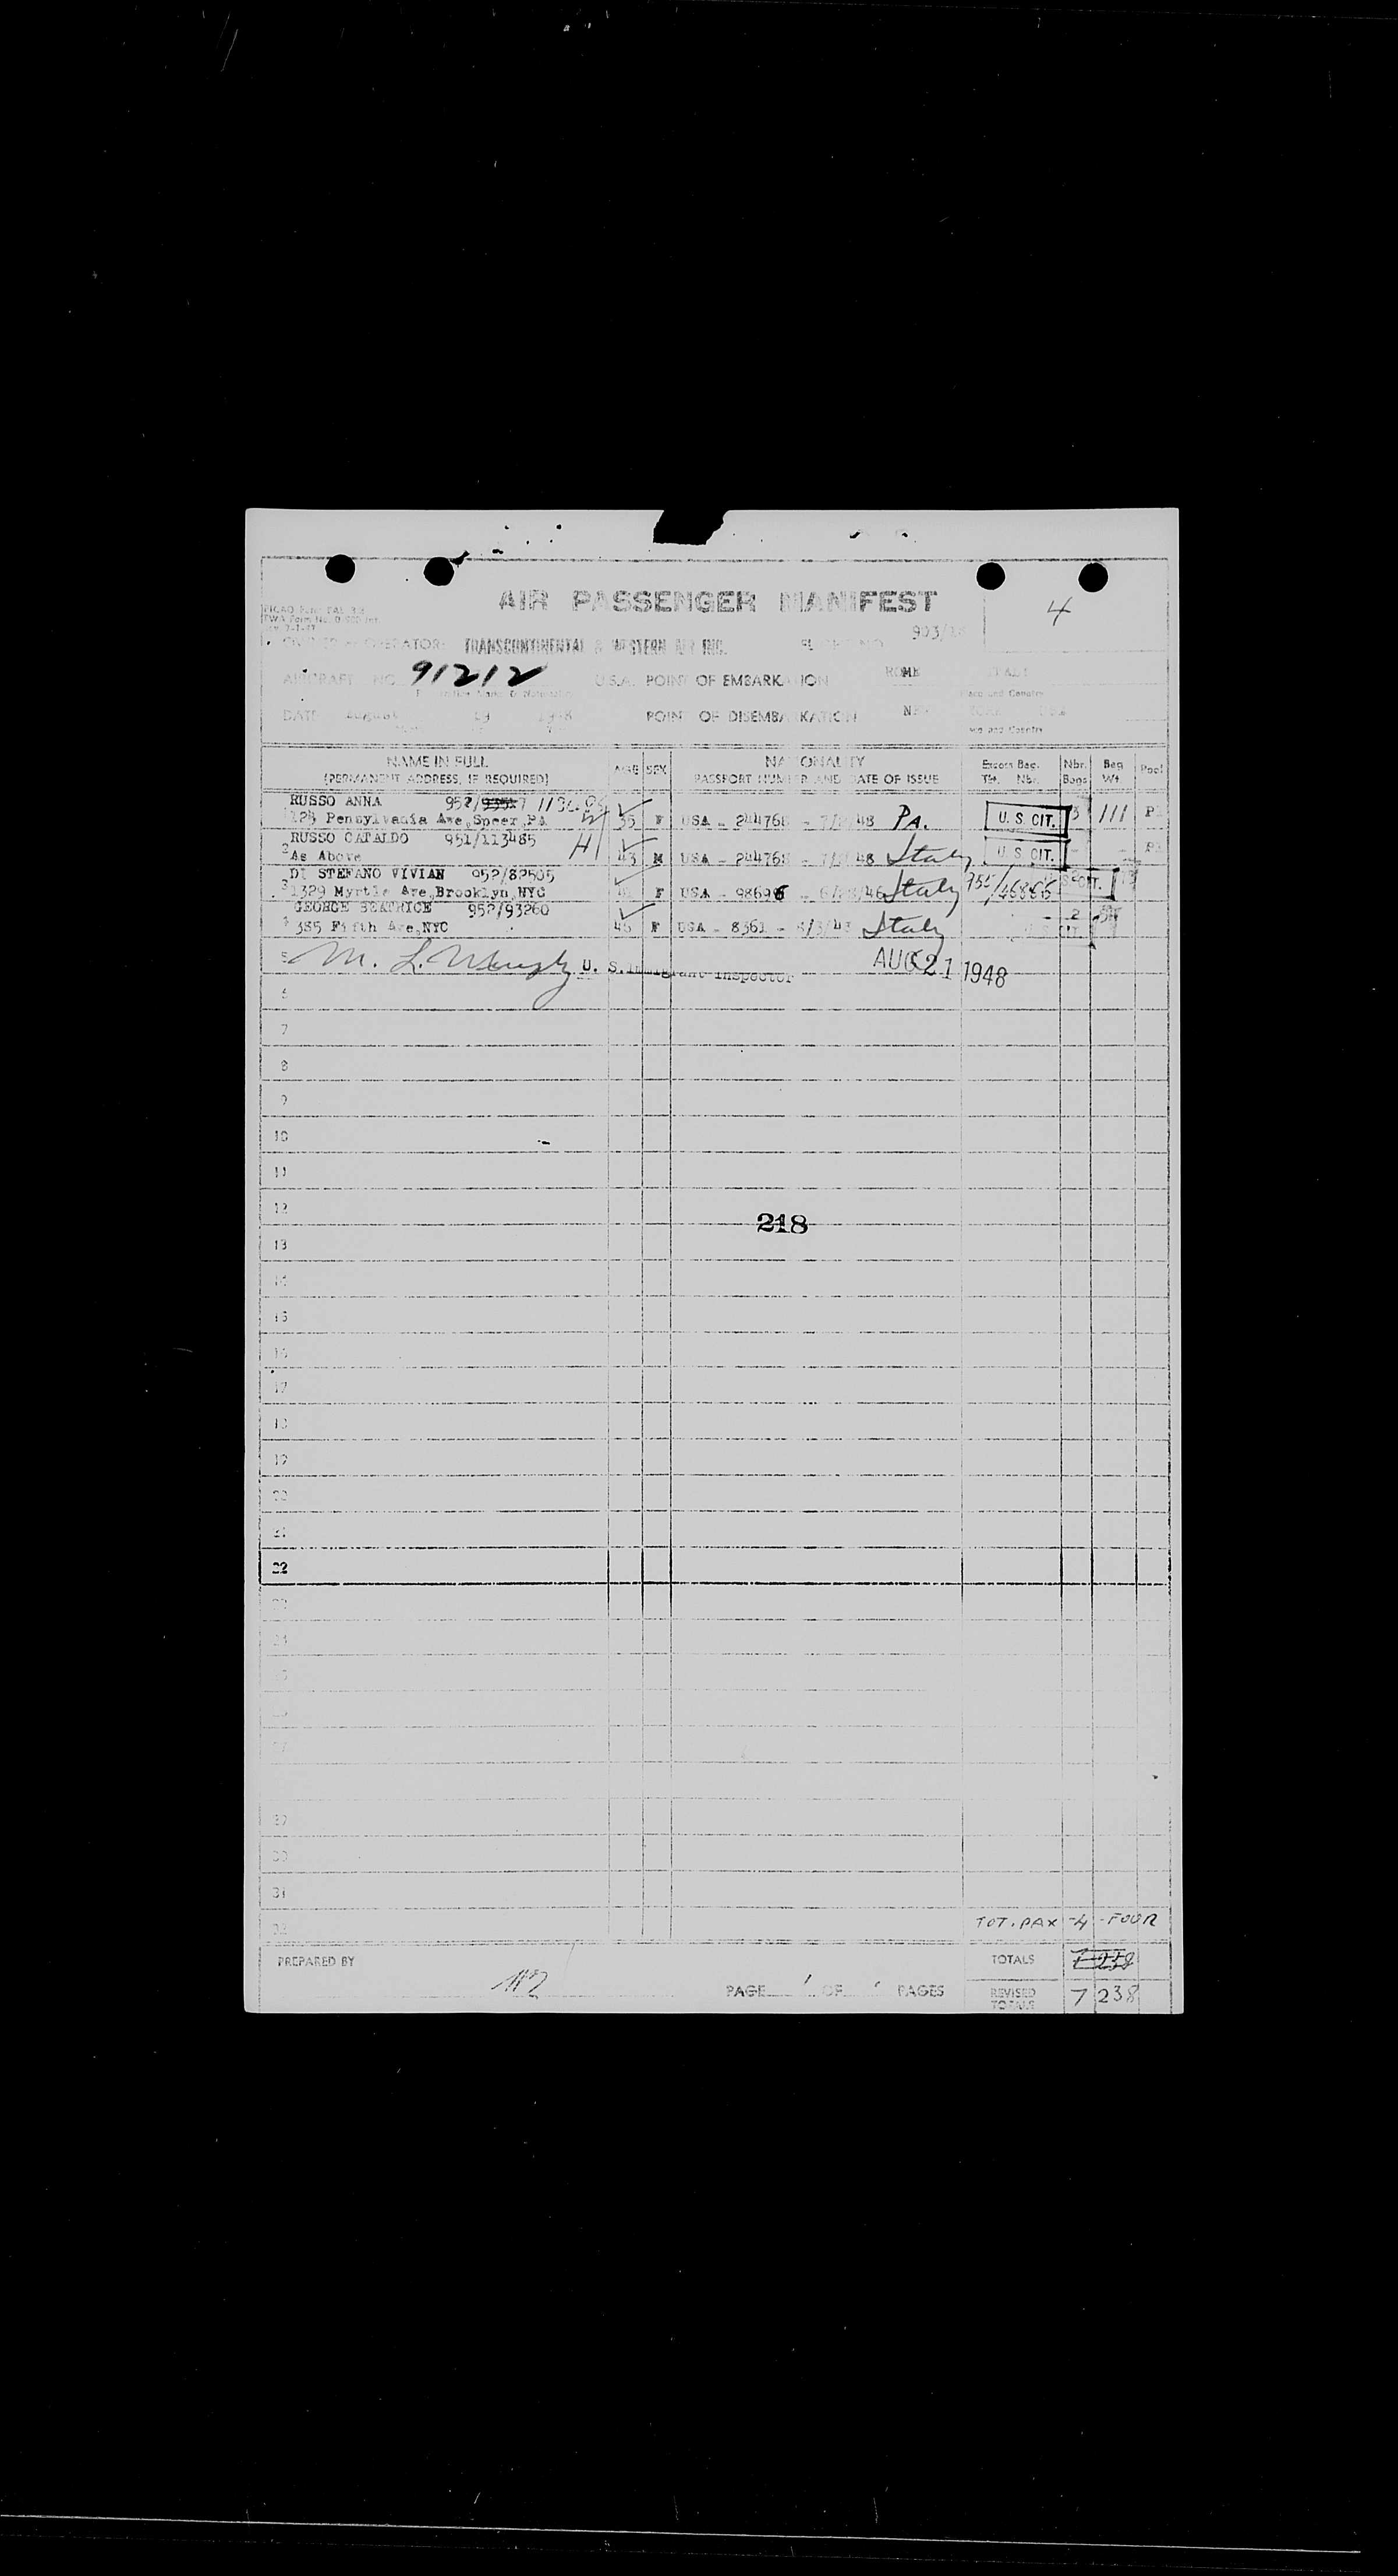 AIR PASSENGER MANIFEST
4
OWNER OR OPERATOR: TRANSCONTINENTAL & WESTERN AIR INC. FLIGHT NO 903/
AIRCRAFT NO 91212 U.S.A. POINT OF EMBARKATION ROME ITALY
Place and Country
DATE August 19 1948 POINT OF DISEMBARKATION NEW YORK USA
Place and Country
NAME IN FULL AGE SEX NATIONALITY Excess Bag. Nbr. Bag Pool
(PERMANENT ADDRESS, IF REQUIRED) PASSPORT NUMBER AND DATE OF ISSUE Tkt. Nbr. Bags Wt.
RUSSO ANNA 952/
Pensylvania Ave, Speer, PA W 35 F USA - 244768 - 48 PA. U. S. CIT. 3 111 P
RUSSO CATALDO 951/113485 H
2 As Above 43 M USA - 244768 - 48 Italy U. S. CIT. -
DI STEFANO VIVIAN 952/82505
3 1329 Myrtle Ave, Brooklyn, NYC F USA - 98696 - 46 Italy
GEORGE BEATRICE 952/93260
4 385 Fifth Ave, NYC 45 F USA - 8361 - Italy - 2
5 M. L. U. S. Immigrant Inspector AUG 21 1948
6
7
8
9
10
11
12
218
13
14
15
16
17
18
19
20
21
22
23
24
25
26
27
29
30
31
32 TOT. PAX -4- FOUR
PREPARED BY TOTALS
PAGE 1 OF 1 PAGES REVISED TOTALS 7 238